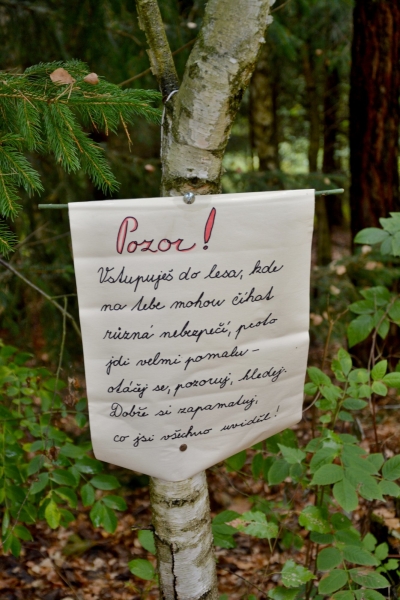 Pozor!
Vstupuješ do lesa, kde
na tebe mohou číhat
různá nebezpečí, proto
jdi velmi pomalu –
otáčej se, pozoruj, hledej.
Dobře si zapamatuj,
co jsi všechno uviděl!